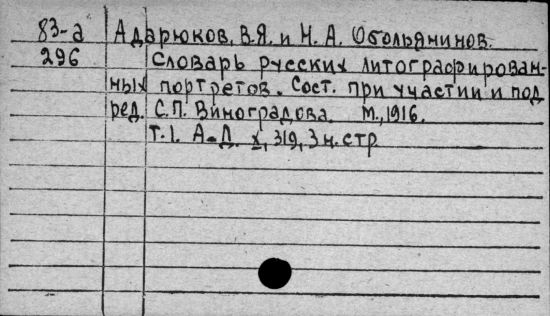 83-а Адарюков, В.Я. и Н.А. Обольянинов.
296 Словарь русских литографирован-
нных портретов. Сост. при участии и под
ред. С.П. Виноградова. М., 1916.
Т.1. А-Д. X, 319, 3 н. стр